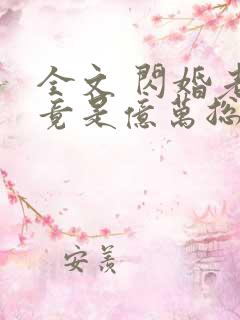 全文 閃婚老
竟是億萬總
安羨